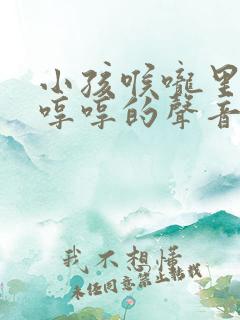 小孩喉嚨里
哼哼的聲音
我不想懂
未经同意禁止转载